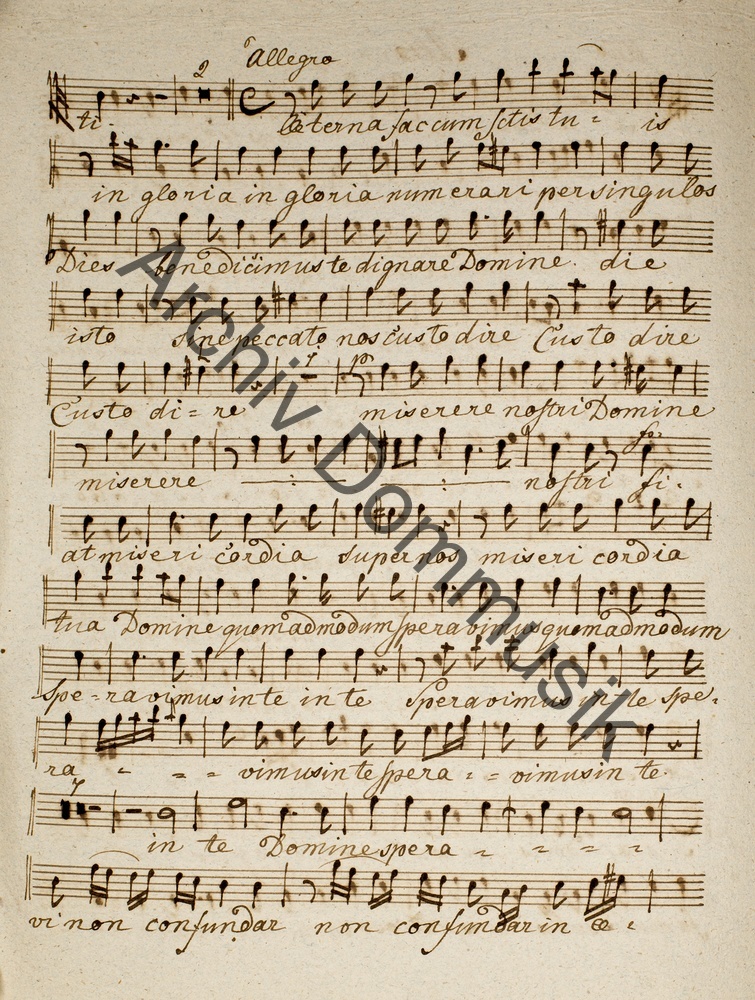 2 Allegro
ti - Æterna fac cum sctis tu = is
in gloria in gloria numerari per singulos
Dies benedicimus te dignare Domine die
isto sine peccato nos custodire Custo dire
7 po
Custo di = re miserere nostri Domine
fo:
miserere nostri fi -
at miseri cordia super nos miseri cordia
tua Domine quemadmodum speravimus quemadmodum
spe = ravimus in te in te Speravimus in te spe -
ra - = = vimus in te spera = = vimus in te
7
in te Domine spera - - - -
vi non confundar non confundar in æ -
Archiv Dommusik